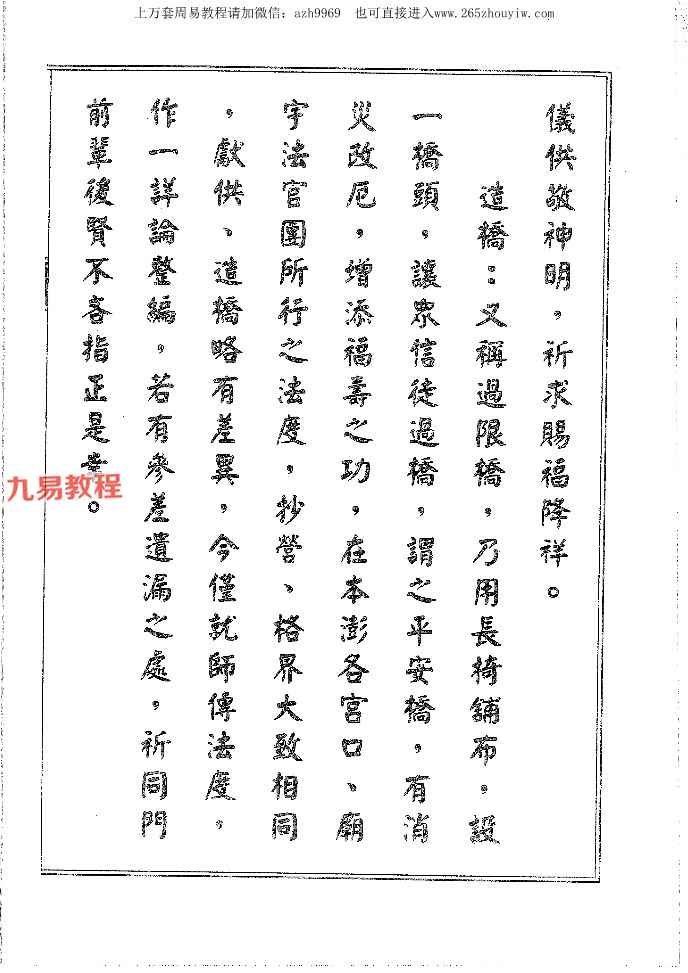 上万套周易教程请加微信：azh9969 也可直接进入www.265zhouyiw.com
儀供敬神明，祈求賜福降祥。
造橋：又稱過限橋，乃用長椅舖布，設
一橋頭，讓眾信徒過橋，謂之平安橋，有消
災改厄，增添福壽之功，在本澎各宮口、廟
宇法官團所行之法度，抄營、格界大致相同
，獻供、造橋略有差異，今僅就師傳法度，
作一詳論整編，若有參差遺漏之處，祈同門
前輩後賢不吝指正是幸。
九易教程